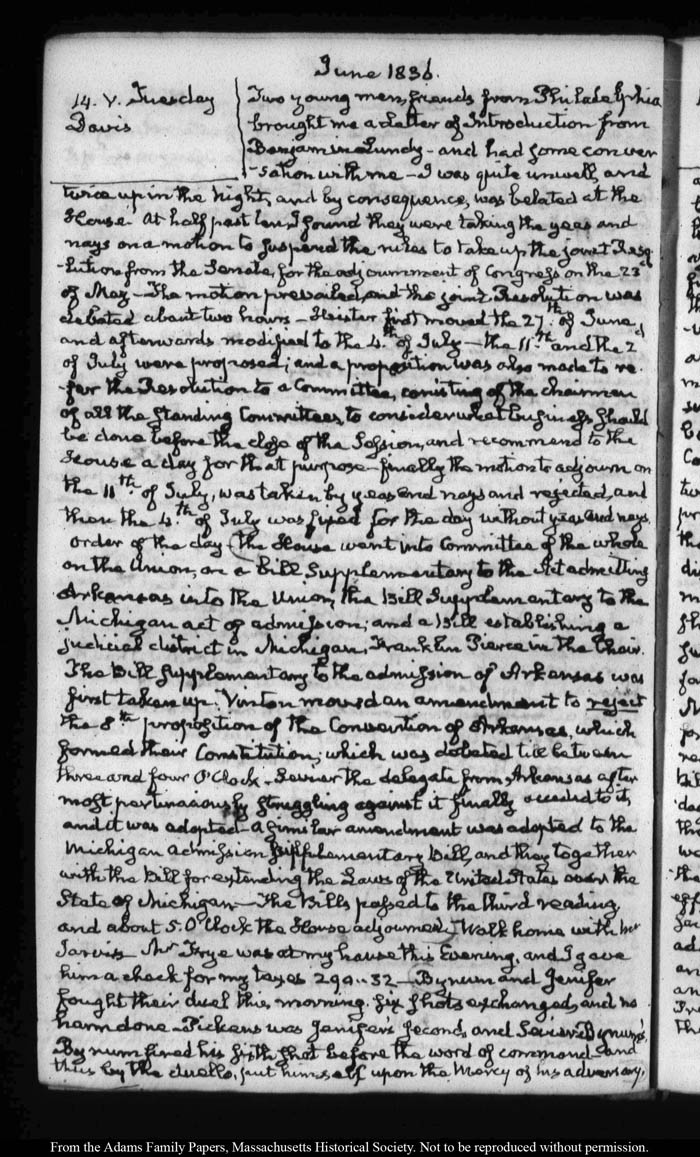 June 1836.
14. V. Tuesday
Davis
Two young men, friends from Philadelphia
brought me a Letter of Introduction from
Benjamin Lundy - and had some conver
-sation with me - I was quite unwell, and
twice up in the Night, and by consequence, was belated at the
House. At half past ten, I found they were taking the yeas and
nays on a motion to suspend the rules to take up the joint Reso
-lution from the Senate, for the adjournment of Congress on the 23d
of May - The motion prevailed, and the joint Resolution was
debated about two hours - Heister first moved the 27th of June,
and afterwards modified to the 4th of July - the 11th and the 2d
of July were proposed; and a proposition was also made to re-
-fer the Resolution to a Committee, consisting of the chairmen
of all the Standing Committees, to consider what business should
be done before the close of the Session, and recommend to the
House a day for that purpose - finally the motion to adjourn on
the 11th of July, was taken by yeas and nays and rejected, and
then the 4th of July was fixed for the day without yeas and nays.
order of the day (the House went into Committee of the whole
on the Union, on a Bill Supplementary to the Act admitting
Arkansas into the Union, the Bill Supplementary to the
Michigan act of admission; and a Bill establishing a
judicial district in Michigan, Franklin Pierce in the Chair.
The Bill supplementary to the admission of Arkansas was
first taken up. Vinton moved an amendment to reject
the 8th proposition of the Convention of Arkansas, which
formed their Constitution; which was debated till between
three and four O'Clock - Sevier the delegate from Arkansas after
most pertinaciously struggling against it finally acceded to it,
and it was adopted - A similar amendment was adopted to the
Michigan admission supplementary Bill, and they together
with the Bill for extending the Laws of the United States over the
State of Michigan - The Bills passed to the third reading
and about 5. O'Clock the House adjourned. Walk home with
Jarvis. Mr Frye was at my house this Evening, and I gave
him a check for my taxes 299..32 - Bynum and Jenifer
fought their duel this morning. six shots exchanged, and no
harm done - Pickens was Jenifer's second, and Sevier Bynum's.
Bynum fired his sixth shot before the word of command and
thus by the duello, put himself upon the Mercy of his adversary,
From the Adams Family Papers, Massachusetts Historical Society. Not to be reproduced without permission.